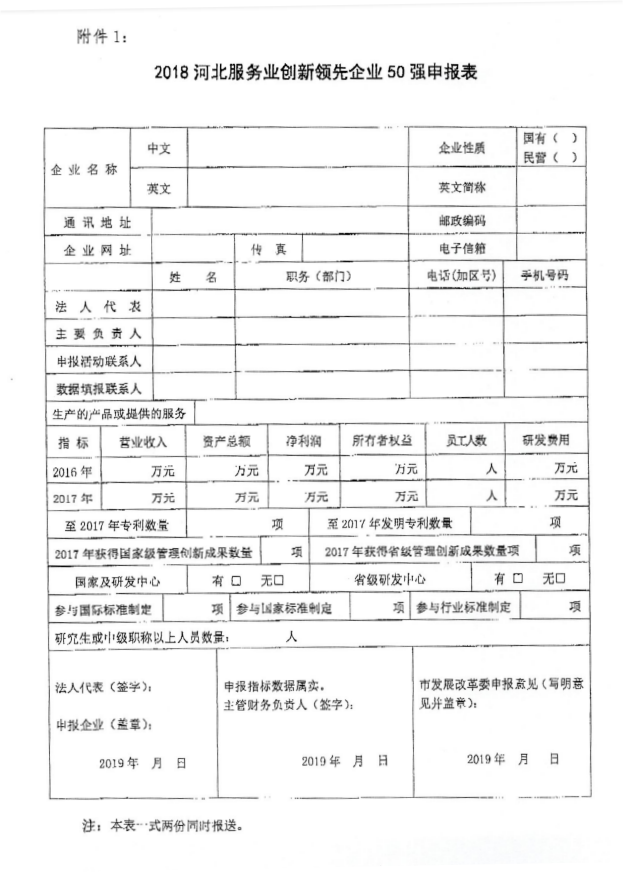 附件 1:
2018 河北服务业创新领先企业 50 强申报表
企 业 名 称 中文 企业性质 国有（ ）
民营（ ）
英文 英文简称
通 讯 地 址 邮政编码
企 业 网 址 传 真 电子信箱
姓 名 职务（部门） 电话(加区号) 手机号码
法 人 代 表
主 要 负 责 人
申报活动联系人
数据填报联系人
生产的产品或提供的服务
指 标 营业收入 资产总额 净利润 所有者权益 员工人数 研发费用
2016 年 万元 万元 万元 万元 人 万元
2017 年 万元 万元 万元 万元 人 万元
至 2017 年专利数量 项 至 2017 年发明专利数量 项
2017 年获得国家级管理创新成果数量 项 2017 年获得省级管理创新成果数量项 项
国家及研发中心 有 □ 无□ 省级研发中心 有 □ 无□
参与国际标准制定 项 参与国家标准制定 项 参与行业标准制定 项
研究生或中级职称以上人员数量： 人
法人代表（签字）： 申报指标数据属实。 市发展改革委申报意见（写明意
主管财务负责人（签字）： 见并盖章）：
申报企业（盖章）：
2019 年 月 日 2019 年 月 日 2019 年 月 日
注：本表一式两份同时报送。